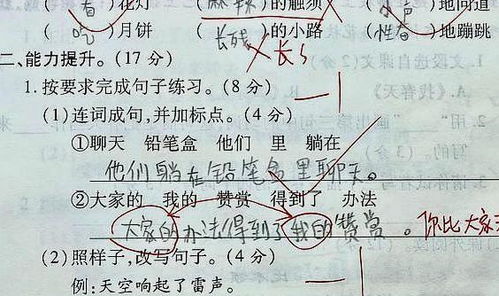 (看)花灯 (麻辣)的触须 (小声)地问道
(吃)月饼 (长长)的小路 ( )地蹦跳
二、能力提升。(17 分)
长
1. 按要求完成句子练习。(8 分)
(1)连词成句,并加标点。(4 分)
①聊天 铅笔盒 他们 里 躺在
他们躺在铅笔盒里聊天。
②大家的 我的 赞赏 得到了 办法
大家的办法得到了我的赞赏。你比大家
(2)照样子,改写句子。(4 分)
例:天空响起了雷声。